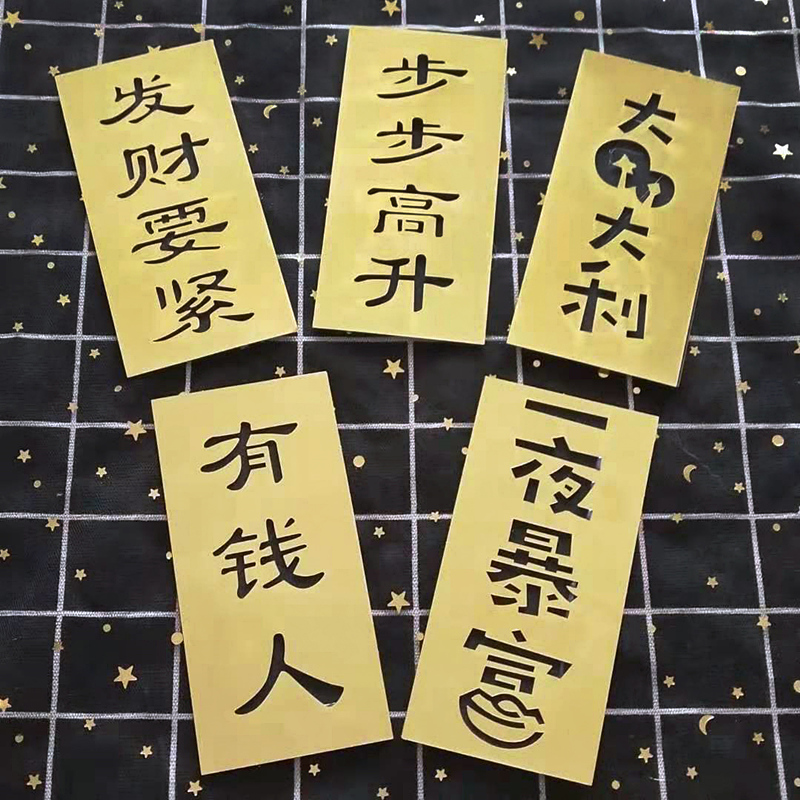 发财要紧
步步高升
大大利
有钱人
一夜暴富